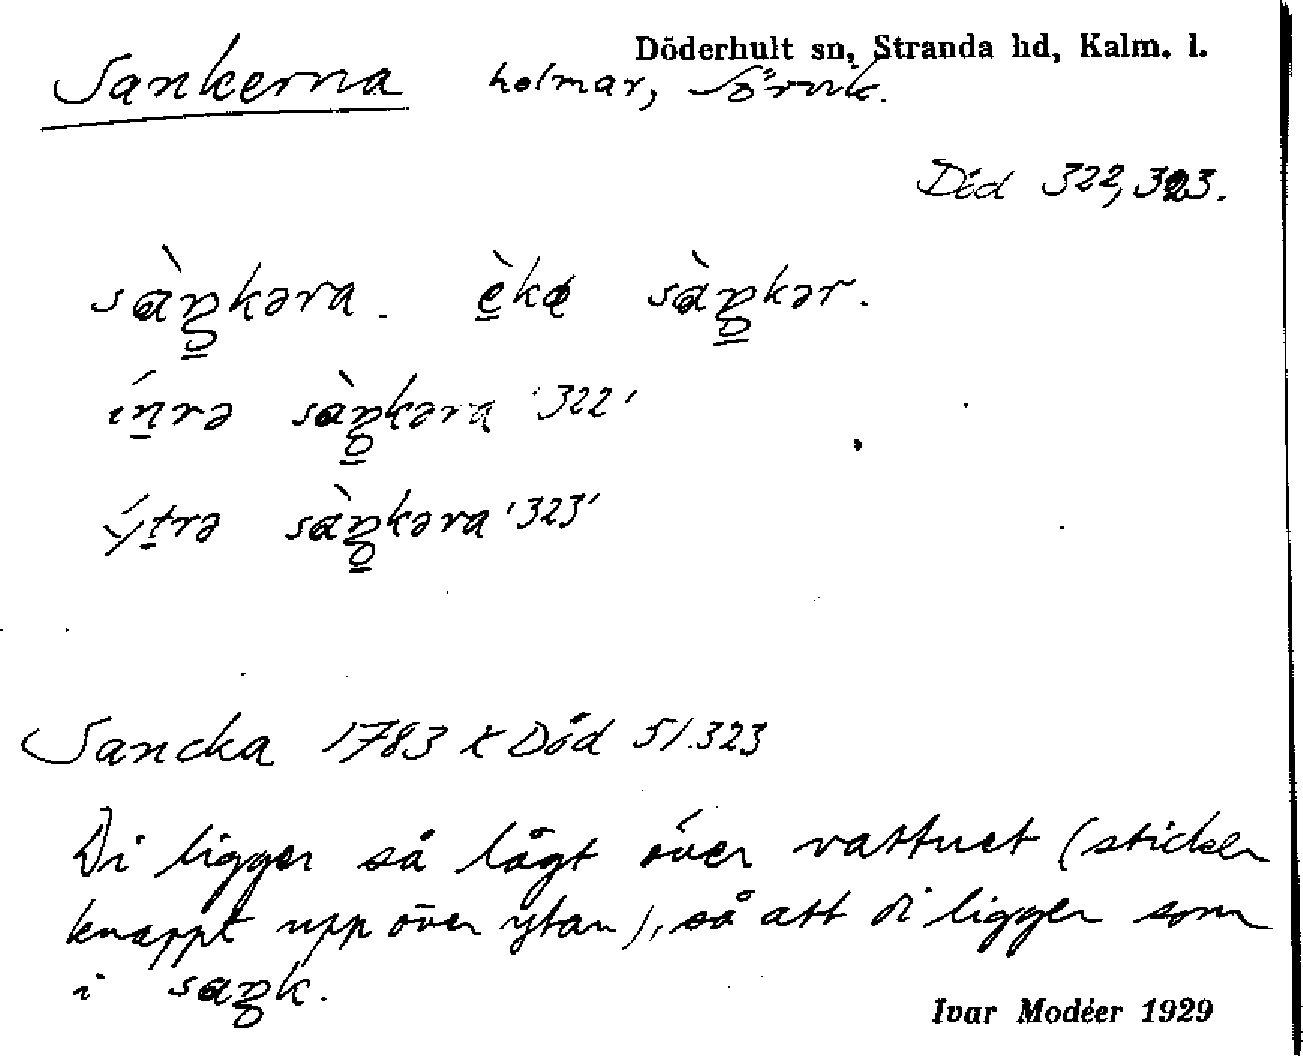 Döderhult sn, Stranda hd, Kalm. l.
Sankerna holmar, Sörvik.
Död 322, 323.
sàŋ̲kəra. è̲kə sàŋ̲kər.
ín̲rə sàŋ̲kəra '322'
ýt̲rə sàŋ̲kəra '323'
Sancka 1783 k Död 51.323
Di ligger så lågt över vattnet (sticker
knappt upp över ytan), så att di ligger som
i saŋk.
Ivar Modéer 1929